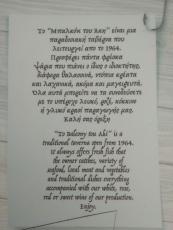 Το "Μπαλκόνι του Άκη" είναι μια
παραδοσιακή ταβέρνα που
λειτουργεί απο το 1964.
Προσφέρει πάντα φρέσκα
ψάρια που πιάνει ο ίδιος ο ιδιοκτήτης,
διάφορα θαλασσινά, ντόπια κρέατα
και λαχανικά, ακόμα και μαγειρευτά.
Όλα αυτά μπορείτε να τα συνοδεύσετε
με το υπέροχο λευκό, ροζέ, κόκκινο
ή γλυκό κρασί παραγωγής μας.
Καλή σας όρεξη
"To Balcony tou Aki" is a
traditional taverna open from 1964.
It always offers fresh fish that
the owner catches, variety of
seafood, local meat and vegetables
and traditional dishes everything
accompanied with our white, rose,
red or sweet wine of our production.
Enjoy.